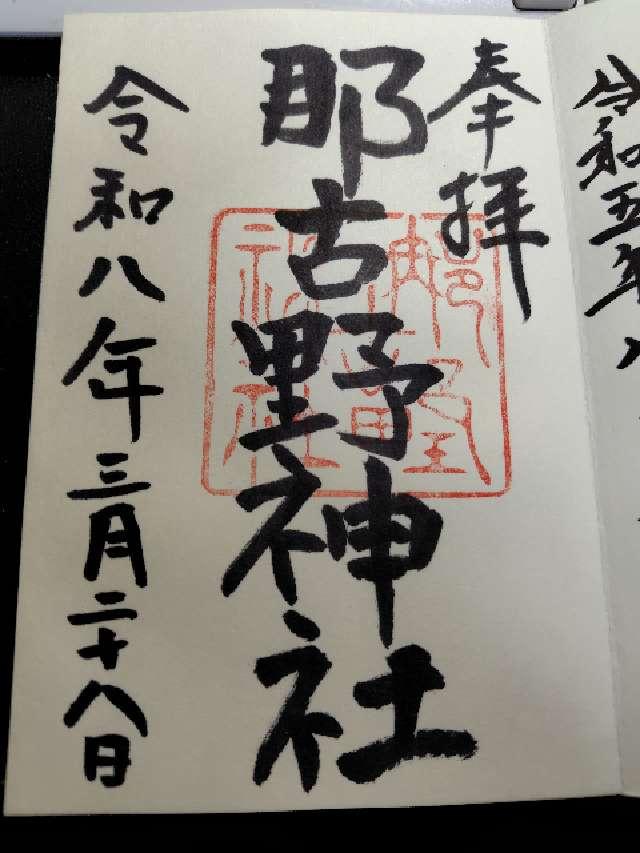 奉拝
那古野神社
令和八年三月二十八日
令和五年